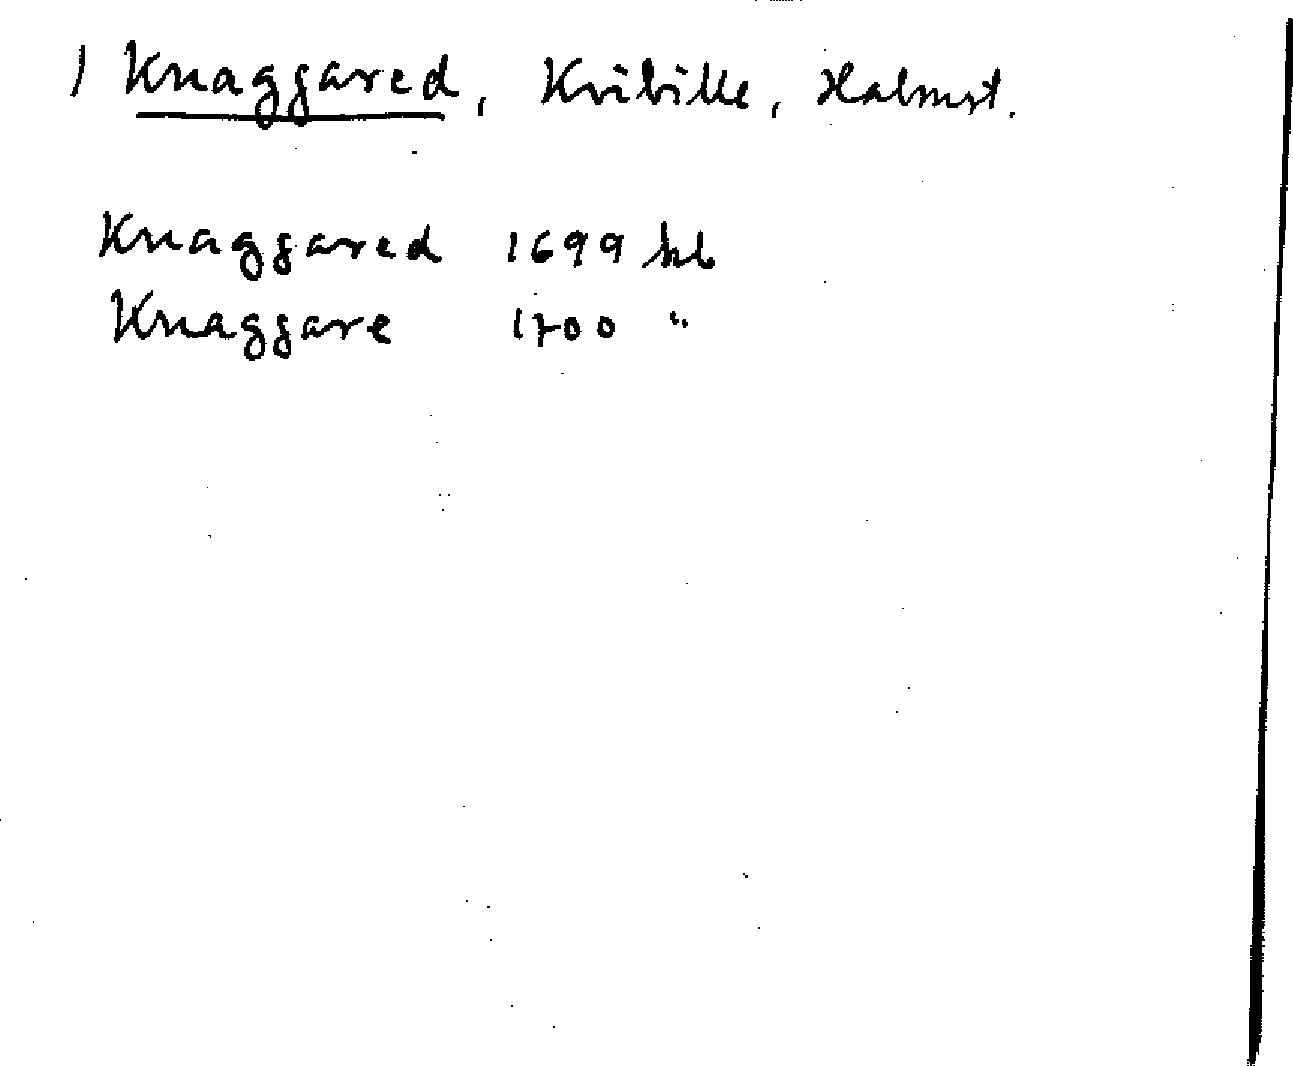 ) Knaggared, Kvibille, Halmst.
Knaggared 1699 kb
Knaggare 1700 "